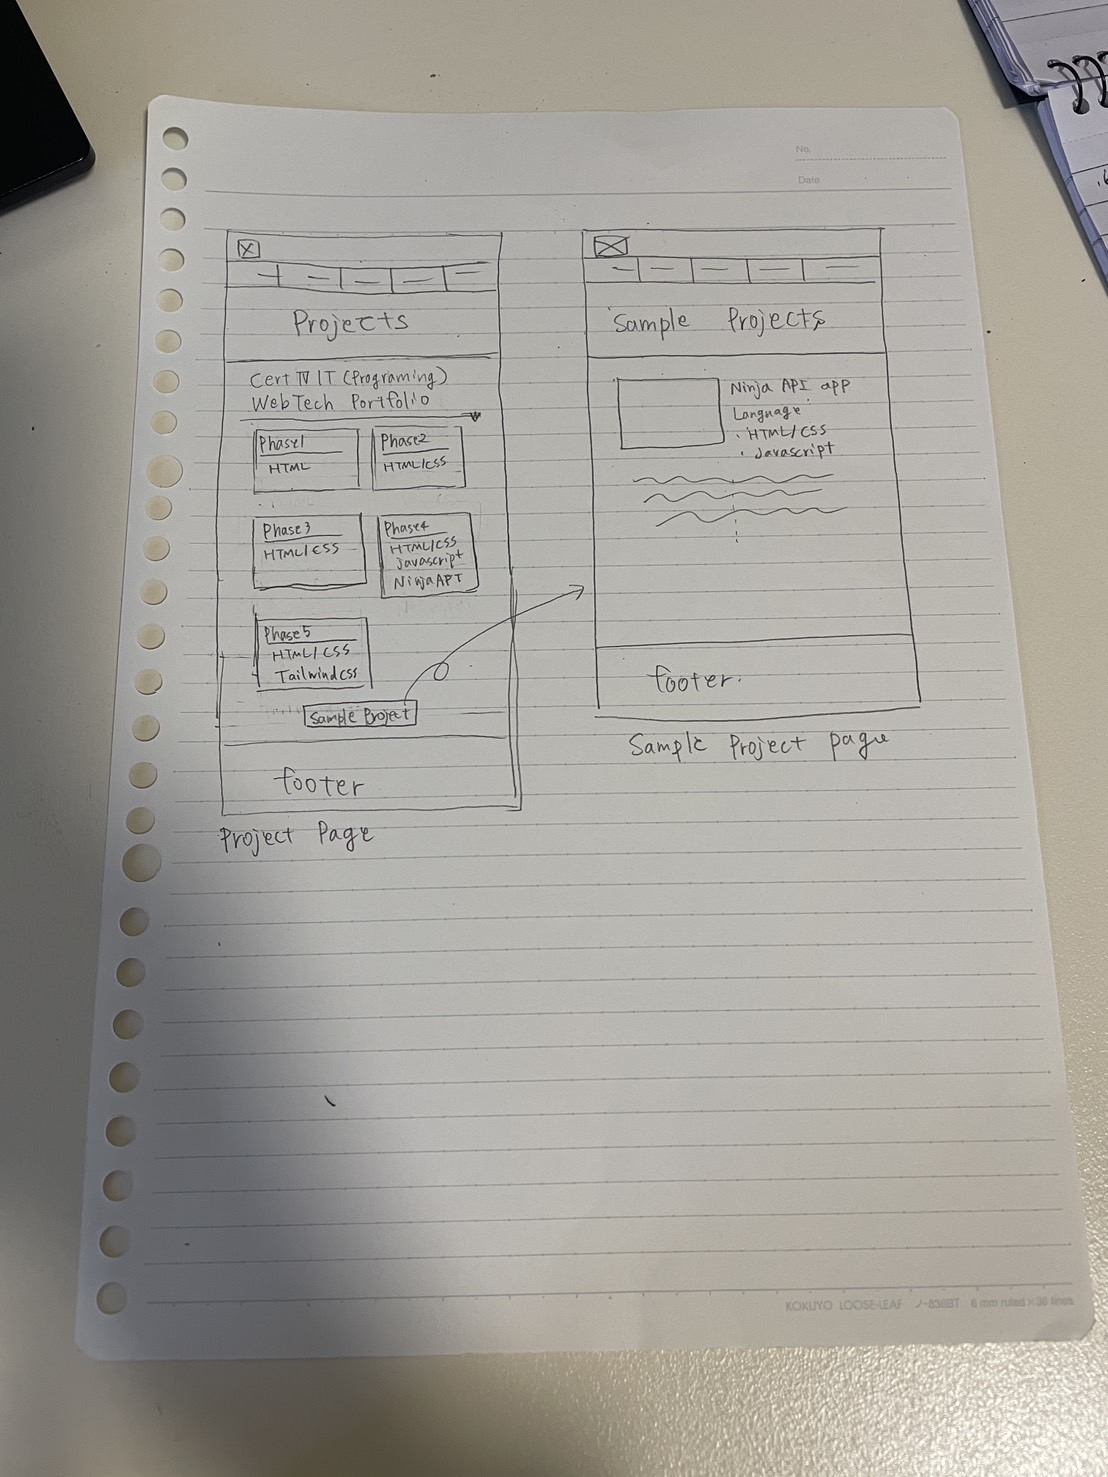 No.
Date
Projects
Cert IV IT (Programing)
WebTech Portfolio
Phase1
HTML
Phase2
HTML/CSS
Phase3
HTML/CSS
Phase4
HTML/CSS
Javascript
NinjaAPI
Phase5
HTML/CSS
Tailwindcss
Sample Project
footer
Project Page
Sample Projects
Ninja API app
Language
・HTML/CSS
・Javascript
footer.
Sample Project page
KOKUYO LOOSE-LEAF ノ-836BT 6 mm ruled×36 lines